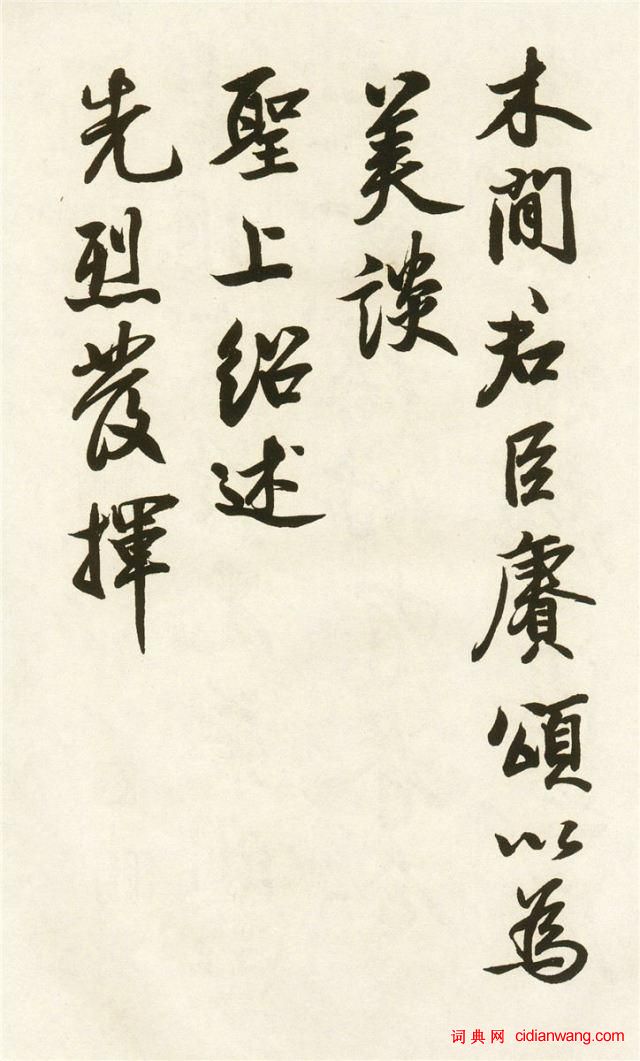 木間君臣賡頌以為
美談
聖上紹述
先烈發揮
词典网 cidianwang.com